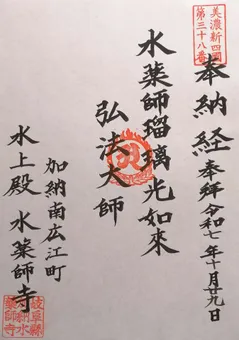 美濃新四国
第三十八番
奉納経
奉拜 令和七年十月廿九日
水薬師瑠璃光如來
弘法大師
加納南広江町
水上殿 水薬師寺
岐阜縣
薬師寺